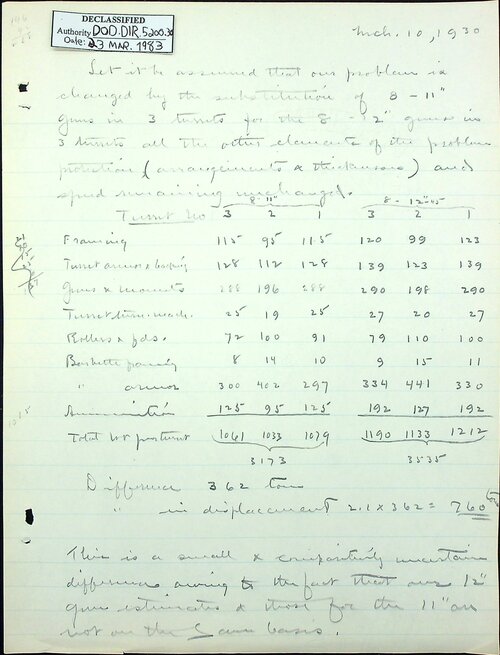 DECLASSIFIED
Authority DOD.DIR.5200.30
Date: 23 MAR. 1983
Mch. 10, 1930
Let it be assumed that our problem is
changed by the substitution of 8 - 11"
guns in 3 turrets for the 8 - 12" guns in
3 turrets all the other elements of the problem
protection (arrangements & thicknesses) and
speed remaining unchanged.
8 - 11" 8 - 12"
Turret No 3 2 1 3 2 1
Framing 115 95 115 120 99 123
Turret armor & 128 112 128 139 123 139
Guns & mounts 288 196 288 290 198 290
Turret 25 19 25 27 20 27
Rollers & fds. 72 100 91 79 110 100
Barbette framing 8 14 10 9 15 11
" armor 300 402 297 334 441 330
Ammunition 125 95 125 192 127 192
Total wt per turret 1061 1033 1079 1190 1133 1212
3173 3535
Difference 362 tons
" in displacement 2.1 x 362 = 760 tons
This is a small & comparatively uncertain
difference owing to the fact that our 12"
gun estimates & those for the 11" are
not on the same basis.